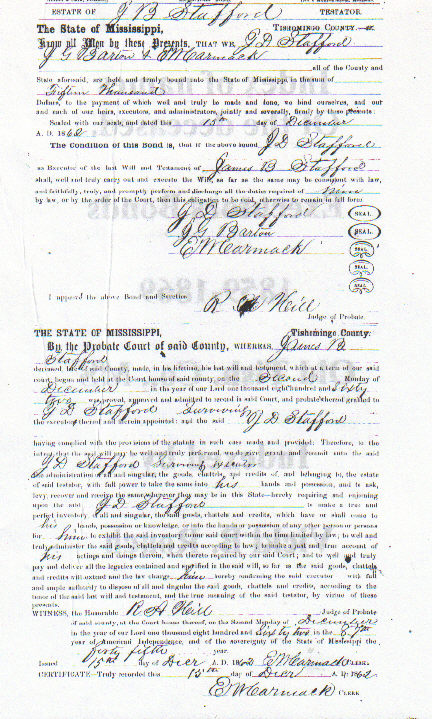 ESTATE OF J B Stafford TESTATOR.
The State of Mississippi, TISHOMINGO COUNTY.—ss.
Know all Men by these Presents, THAT WE, J D Stafford
J G Barton & E W Carmack
all of the County and
State aforesaid, are held and firmly bound unto the State of Mississippi, in the sum of
Fifteen Thousand
Dollars, to the payment of which well and truly be made and done, we bind ourselves, and our
and each of our heirs, executors, and administrators, jointly and severally, firmly by these presents:
Sealed with our seals, and dated this 15th day of December
A. D. 1862
The Condition of this Bond is, that if the above bound J D Stafford
as Executor of the last Will and Testament of James B Stafford
shall, well and truly carry out and execute the Will, as far as the same may be consistent with law,
and faithfully, truly, and promptly perform and discharge all the duties required of him
by law, or by the order of the Court, then this obligation to be void, otherwise to remain in full force.
J D Stafford SEAL.
J G Barton SEAL.
E W Carmack SEAL.
SEAL.
SEAL.
I approve the above Bond and Securities
R A Neill
Judge of Probate
THE STATE OF MISSISSIPPI, Tishomingo County.
By the Probate Court of said County, WHEREAS, James B
Stafford
deceased, late of said County, made, in his lifetime, his last will and testament, which at a term of our said
court, begun and held at the Court house of said county on the Second Monday of
December in the year of our Lord one thousand eight hundred and sixty
two was proved, approved and admitted to record in said Court, and probate thereof granted to
J D Stafford Surviving
the executor thereof and therein appointed: and the said J D Stafford
having complied with the provisions of the statute in such case made and provided: Therefore, to the
intent that the said will may be well and truly performed, we do hereby grant and commit unto the said
J D Stafford Surviving
the administration of all and singular, the goods, chattels, and credits of, and belonging to, the estate
of said testator, with full power to take the same into his hands and possession, and to ask,
levy, recover and receive the same wherever they may be in this State—hereby requiring and enjoining
upon the said J D Stafford to make a true and
perfect inventory of all and singular, the said goods, chattels and credits, which have or shall come to
his hands, possession or knowledge, or into the hands or possession of any other person or persons
for him to exhibit said inventory in our said Court within the time prescribed by law; to well and
truly administer the said goods, chattels and credits according to law; to make a just and true account of
his actings and doings therein, when thereto required by our said Court; and to well and truly
pay and deliver all the legacies contained and specified in the said will, so far as the said goods, chattels
and credits will extend and the law charge him hereby confirming the said executor with full
and ample authority to dispose of all and singular the said goods, chattels and credits, according to the
tenor of the said last will and testament, and the true meaning of the said testator, by virtue of these
presents.
WITNESS, the Honorable R A Neill Judge of Probate
of said county, at the Court house thereof, on the Second Monday of December
in the year of our Lord one thousand eight hundred and Sixty two in the 87th
year of American Independence, and of the sovereignty of the State of Mississippi the
forty fifth year.
Issued 15th day of Decr A. D. 1862 E W Carmack CLERK.
CERTIFICATE—Truly recorded this 15th day of Decr A. D. 1862
E W Carmack CLERK